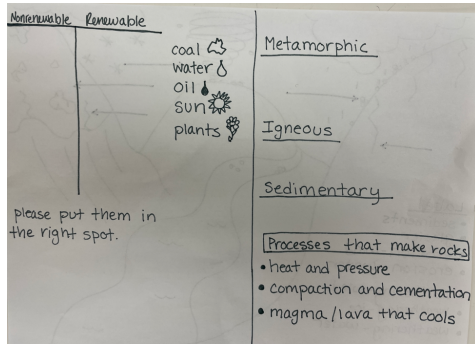 Nonrenewable Renewable
coal
water
oil
sun
plants
please put them in
the right spot.
Metamorphic
Igneous
Sedimentary
Processes that make rocks
• heat and pressure
• compaction and cementation
• magma/lava that cools